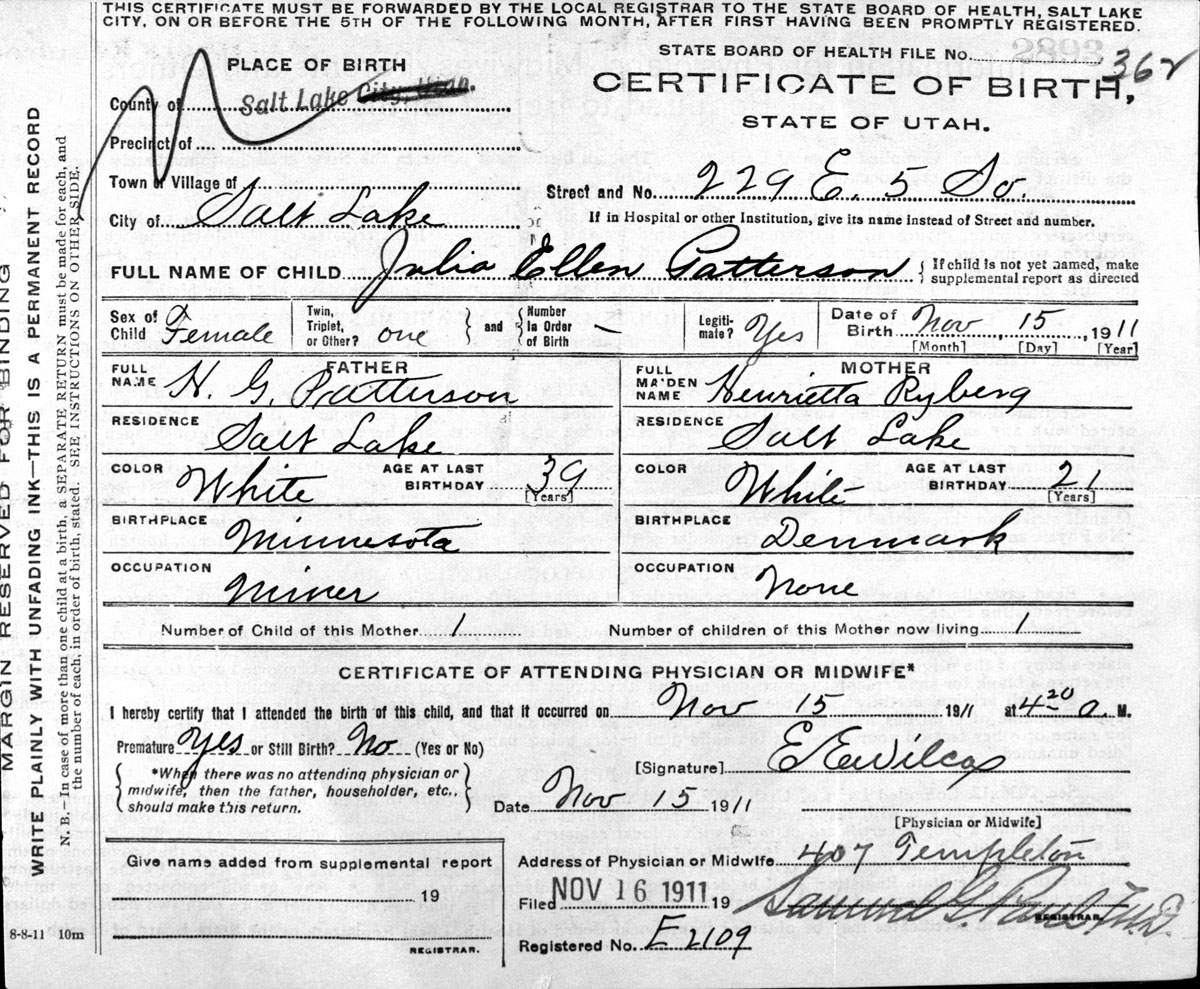 THIS CERTIFICATE MUST BE FORWARDED BY THE LOCAL REGISTRAR TO THE STATE BOARD OF HEALTH, SALT LAKE
CITY, ON OR BEFORE THE 5TH OF THE FOLLOWING MONTH, AFTER FIRST HAVING BEEN PROMPTLY REGISTERED.
MARGIN RESERVED FOR BINDING
WRITE PLAINLY WITH UNFADING INK—THIS IS A PERMANENT RECORD
N. B.—In case of more than one child at a birth, a SEPARATE RETURN must be made for each, and
the number of each, in order of birth, stated. SEE INSTRUCTIONS ON OTHER SIDE.
STATE BOARD OF HEALTH FILE No. 362
PLACE OF BIRTH
CERTIFICATE OF BIRTH,
STATE OF UTAH.
County of Salt Lake City, Utah.
Precinct of
Town or Village of
Street and No. 229 E. 5 So.
City of Salt Lake
If in Hospital or other Institution, give its name instead of Street and number.
FULL NAME OF CHILD Julia Ellen Patterson { If child is not yet named, make
supplemental report as directed
Sex of Child Female
Twin, Triplet, or Other? one } and { Number In Order of Birth —
Legitimate? Yes
Date of Birth Nov 15, 1911
[Month] [Day] [Year]
FATHER
FULL NAME H. G. Patterson
RESIDENCE Salt Lake
COLOR White AGE AT LAST BIRTHDAY 39 [Years]
BIRTHPLACE Minnesota
OCCUPATION Miner
MOTHER
FULL MAIDEN NAME Henrietta Ryberg
RESIDENCE Salt Lake
COLOR White AGE AT LAST BIRTHDAY 21 [Years]
BIRTHPLACE Denmark
OCCUPATION None
Number of Child of this Mother 1 Number of children of this Mother now living 1
CERTIFICATE OF ATTENDING PHYSICIAN OR MIDWIFE*
I hereby certify that I attended the birth of this child, and that it occurred on Nov 15 1911 at 4-20 a M.
Premature Yes or Still Birth? No (Yes or No)
{ *When there was no attending physician or
midwife, then the father, householder, etc.,
should make this return. }
[Signature] E E Wilcox
Date Nov 15 1911
[Physician or Midwife]
Give name added from supplemental report
19
REGISTRAR.
Address of Physician or Midwife 407 Templeton
Filed NOV 16 1911 19 Samuel G Paul M.D.
REGISTRAR.
Registered No. E 2109
8-8-11 10m